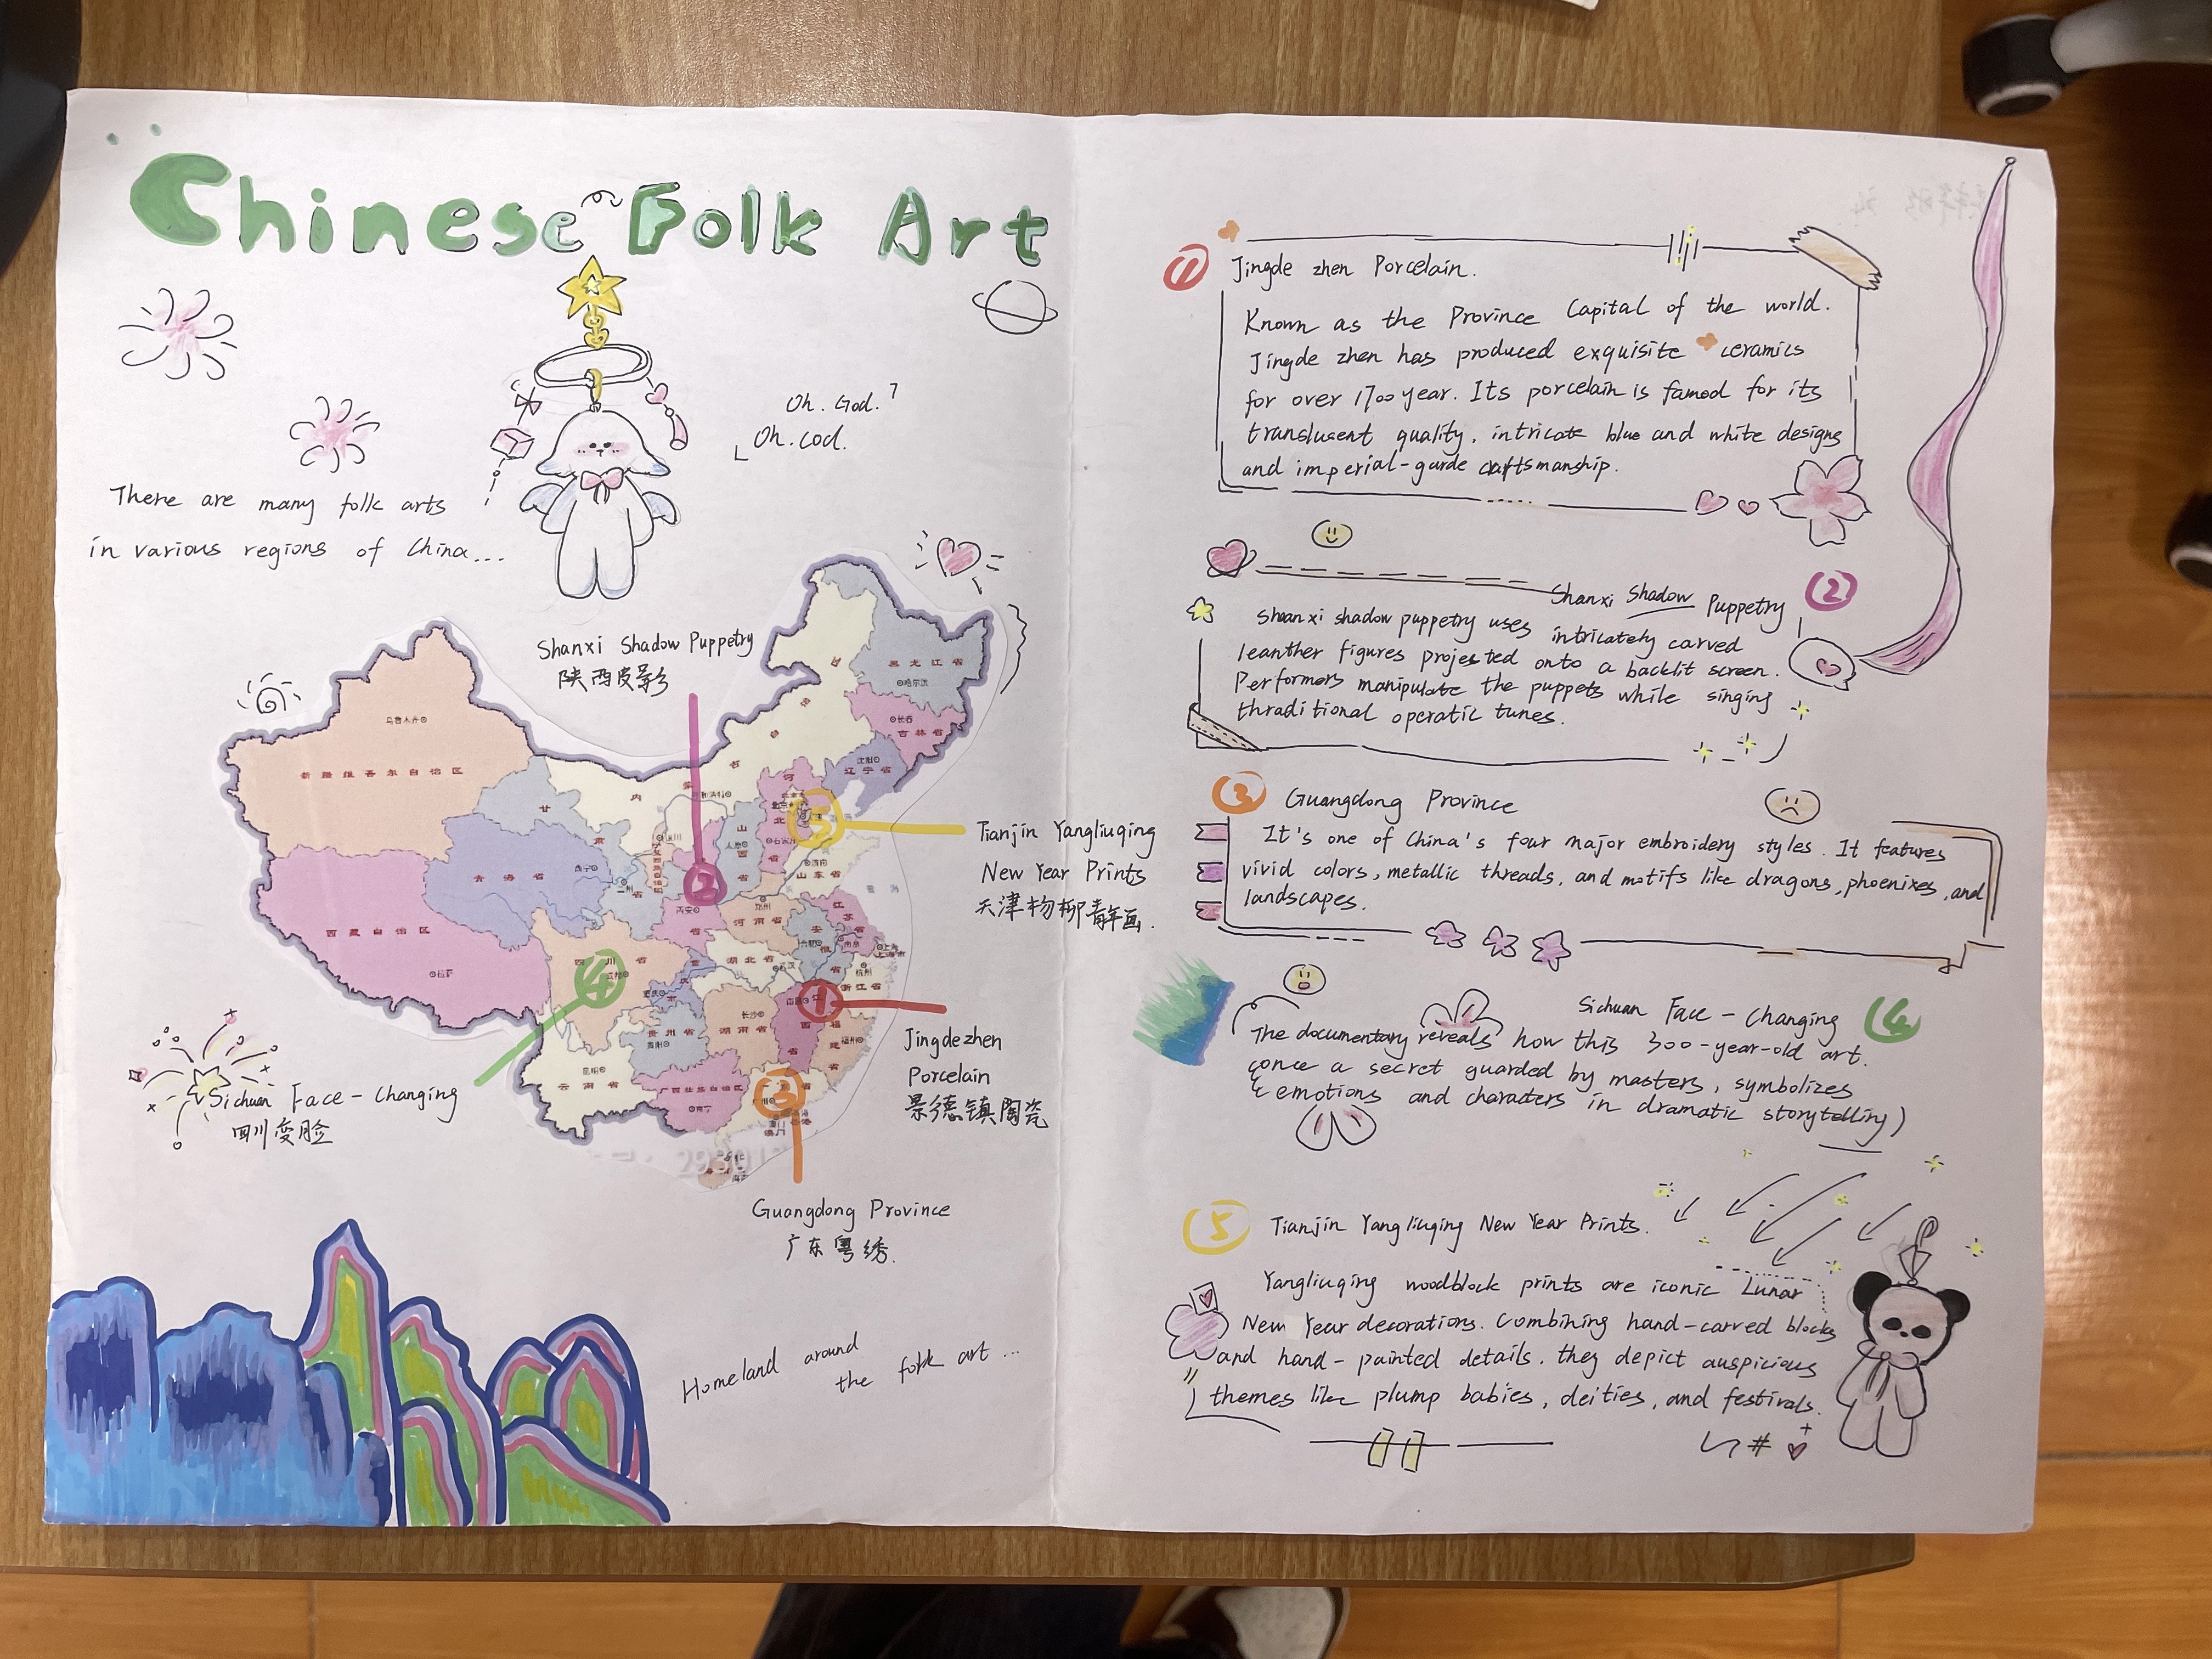 Chinese Folk Art
Oh. God.
Oh. God.
There are many folk arts
in various regions of China...
Shanxi Shadow Puppetry
陕西皮影
黑龙江省
哈尔滨
长春
吉林省
沈阳
辽宁省
乌鲁木齐
新疆维吾尔自治区
内蒙古
甘肃
青海省
西宁
兰州
银川
山西
河北
山东省
济南
西藏自治区
拉萨
西安
河南省
郑州
江苏
安徽
合肥
南京
上海
上海市
四川省
成都
重庆
湖北省
武汉
杭州
浙江省
长沙
湖南省
南昌
江西省
福建
福州
贵州省
贵阳
云南省
昆明
广西壮族自治区
南宁
5
2
4
1
3
Tianjin Yangliuqing
New Year Prints
天津杨柳青年画.
Jingdezhen
Porcelain
景德镇陶瓷
Sichuan Face-Changing
四川变脸
Guangdong Province
广东粤绣.
Homeland around
the folk art ...
1 Jingde zhen Porcelain.
Known as the Province Capital of the world.
Jingde zhen has produced exquisite ceramics
for over 1700 year. Its porcelain is famed for its
translucent quality, intricate blue and white designs
and imperial-garde craftsmanship.
Shanxi Shadow Puppetry 2
Shanxi shadow puppetry uses intricately carved
leanther figures projected onto a backlit screen.
Performers manipulate the puppets while singing
thraditional operatic tunes.
3 Guangdong Province
It's one of China's four major embroidery styles. It features
vivid colors, metallic threads, and motifs like dragons, phoenixes, and
landscapes.
Sichuan Face-Changing 4
The documentary reveals how this 300-year-old art.
(once a secret guarded by masters, symbolizes
emotions and characters in dramatic storytelling)
5 Tianjin Yangliuqing New Year Prints.
Yangliuqing woodblock prints are iconic Lunar
New Year decorations. Combining hand-carved blocks
and hand-painted details, they depict auspicious
themes like plump babies, deities, and festivals.
#